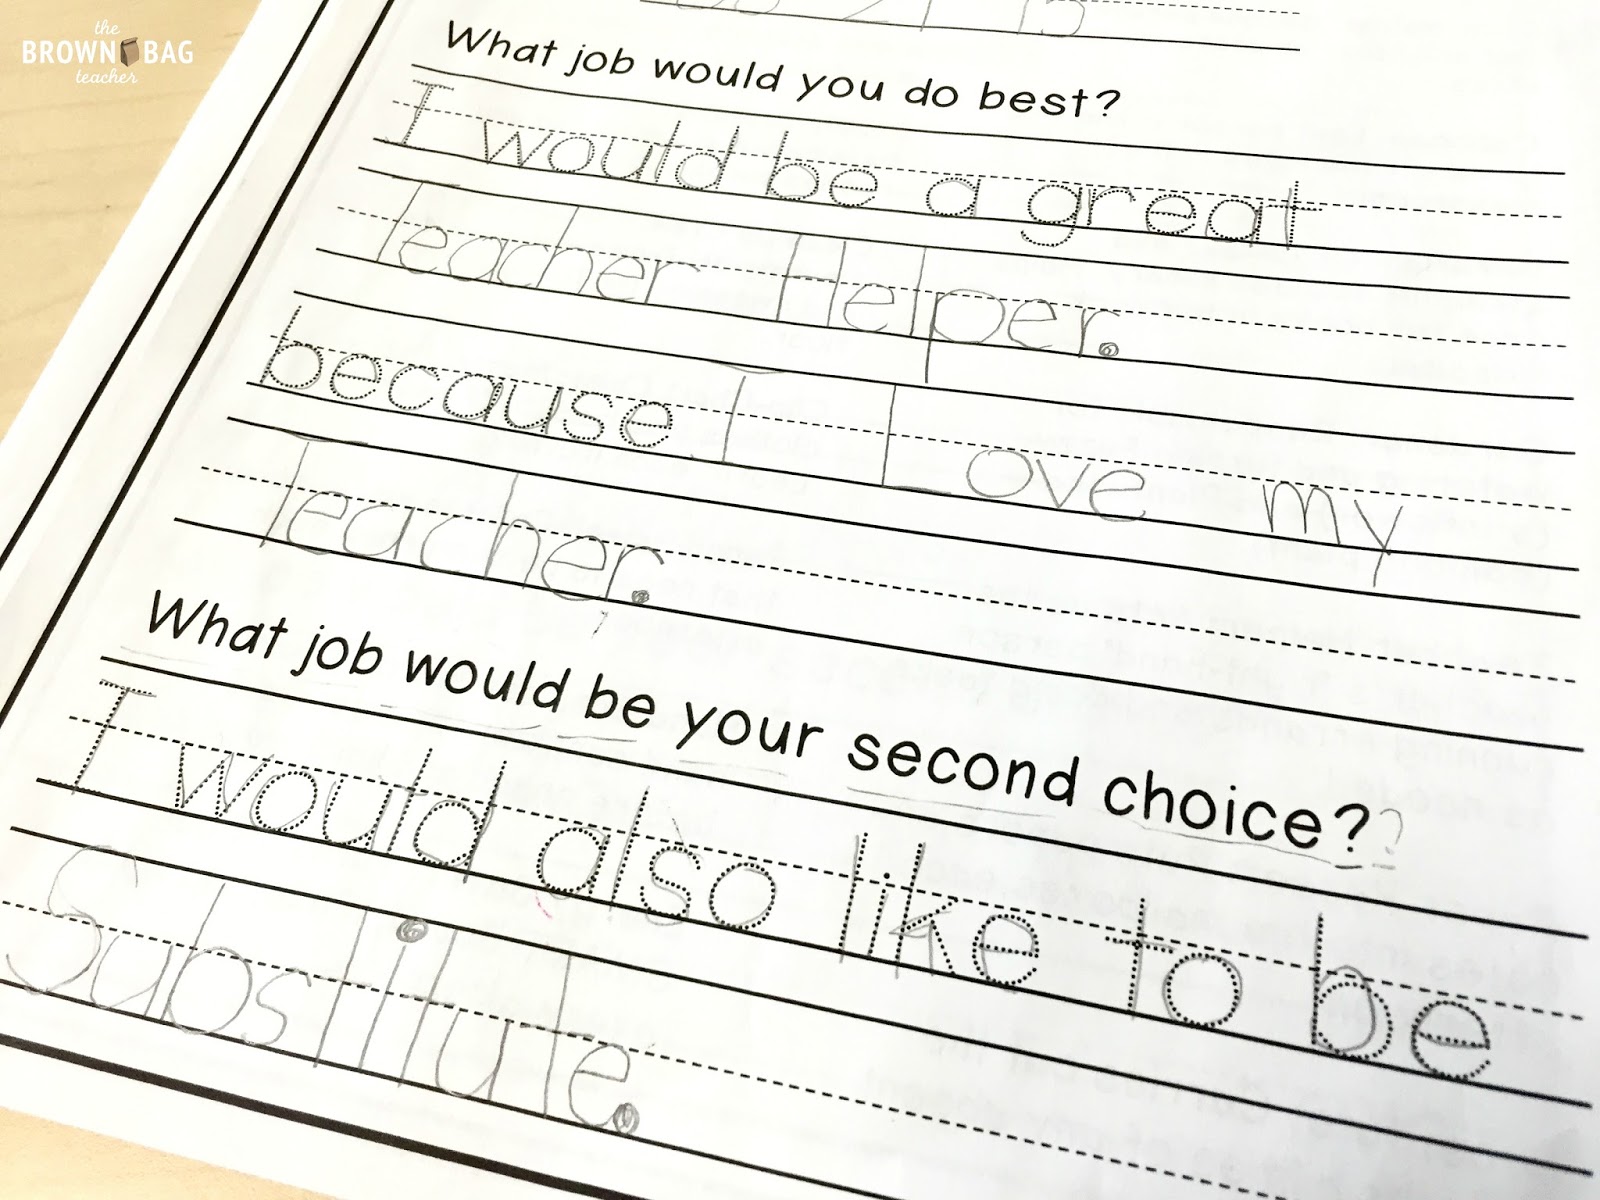 the
BROWN BAG
teacher
What job would you do best?
I would be a great
Teacher Helper.
because I Love my
Teacher.
What job would be your second choice??
I would also like to be
Substitute.